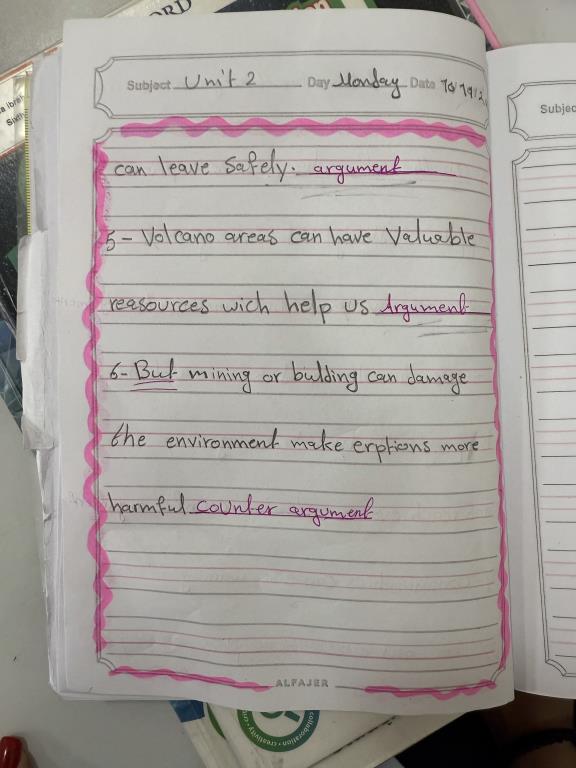 ORD
Subject Unit 2 Day Monday Date
Subjec
can leave safely. argument
5- Volcano areas can have Valuable
reasources wich help us Argument
6- But mining or bulding can damage
the environment make erptions more
harmful counter argument
ALFAJER
collaboration • creativity